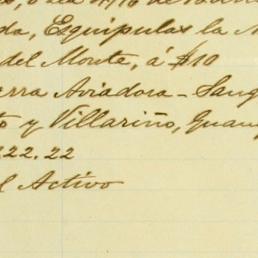 da, Esquipulas la
del Monte, á $10
rra Aviadora - Sang
to y Villariño, Guan
222.22
l Activo